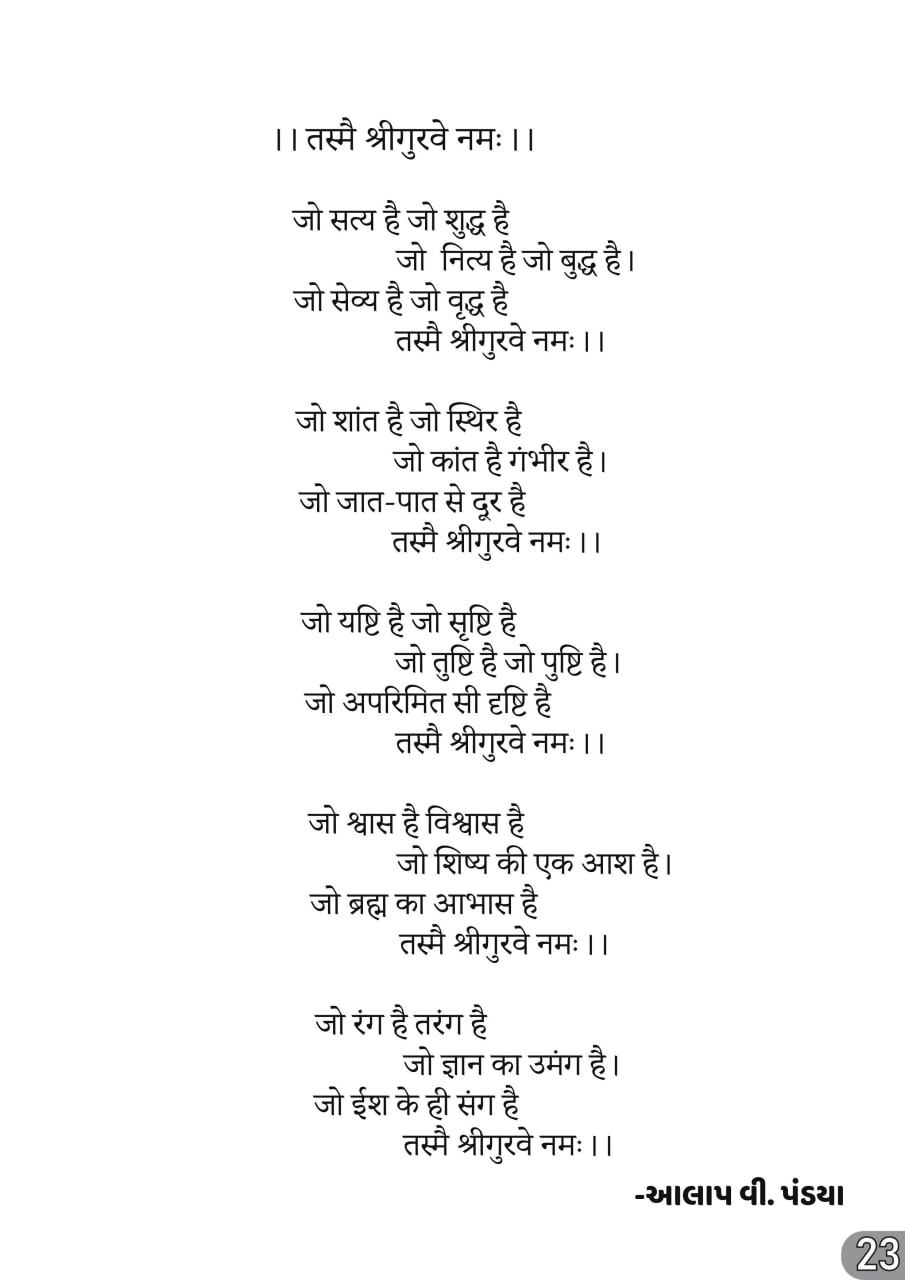 ।। तस्मै श्रीगुरवे नमः ।।
जो सत्य है जो शुद्ध है
जो नित्य है जो बुद्ध है।
जो सेव्य है जो वृद्ध है
तस्मै श्रीगुरवे नमः ।।
जो शांत है जो स्थिर है
जो कांत है गंभीर है।
जो जात-पात से दूर है
तस्मै श्रीगुरवे नमः ।।
जो यष्टि है जो सृष्टि है
जो तुष्टि है जो पुष्टि है।
जो अपरिमित सी दृष्टि है
तस्मै श्रीगुरवे नमः ।।
जो श्वास है विश्वास है
जो शिष्य की एक आश है।
जो ब्रह्म का आभास है
तस्मै श्रीगुरवे नमः ।।
जो रंग है तरंग है
जो ज्ञान का उमंग है।
जो ईश के ही संग है
तस्मै श्रीगुरवे नमः ।।
-આલાપ વી. પંડયા
23